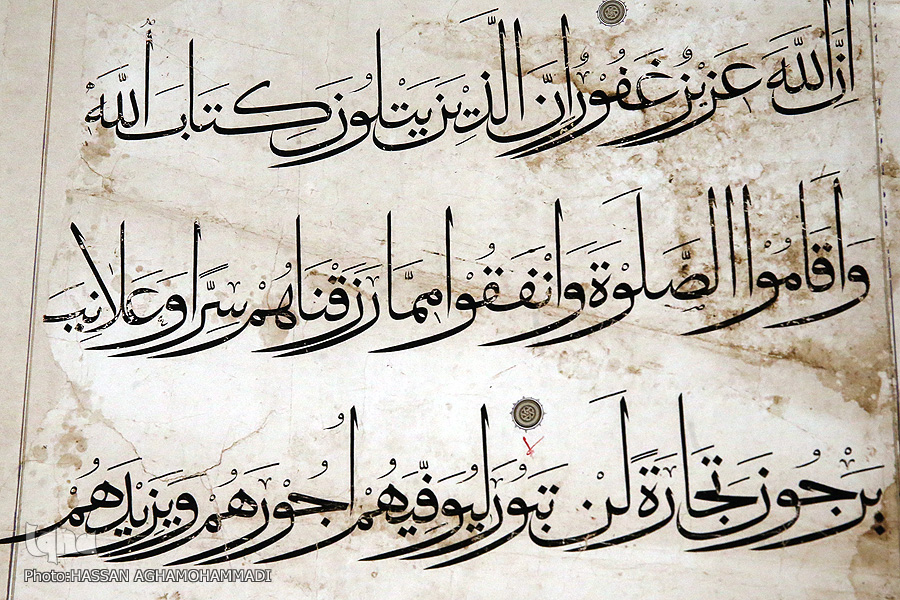 اِنَّ اللّٰهَ عَزِیْزٌ غَفُوْرٌ اِنَّ الَّذِیْنَ یَتْلُوْنَ كِتَابَ اللّٰهِ
وَاَقَامُوْا الصَّلٰوةَ وَاَنْفَقُوْا مِمَّا رَزَقْنَاهُمْ سِرًّا وَعَلَانِیَـ
یَرْجُوْنَ تِجَارَةً لَنْ تَبُوْرَ لِیُوَفِّیَهُمْ اُجُوْرَهُمْ وَیَزِیْدَهُمْ
iqna
Photo:HASSAN AGHAMOHAMMADI